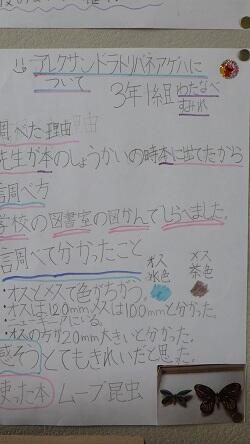 アレクサンドラトリバネアゲハに
ついて
3年1組 わたなべ
すみれ
調べた理由
先生が本のしょうかいの時本に出てたから
調べ方
学校の図書室の図かんでしらべました。
調べて分かったこと
オス 水色
メス 茶色
・オスとメスで色がちがう。
・オスは120mmメスは100mmと分かった。
・ニューギニアにいる。
・オスの方が20mm大きいと分かった。
感そう とてもきれいだと思った。
使った本 ムーブ昆虫